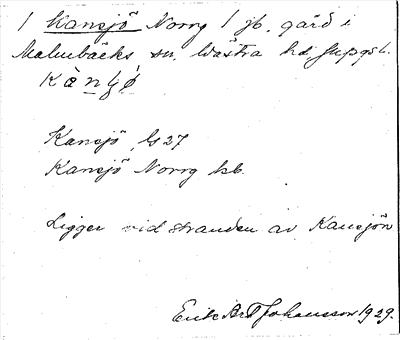 1 Kansjö Norrg 1 jb. gård i
Malmbäcks sn. Västra hd Jkpgs l.
Kansjö ls 27
Kansjö Norrg kb.
Ligger vid stranden av Kansjön
Erik Johansson 1929.